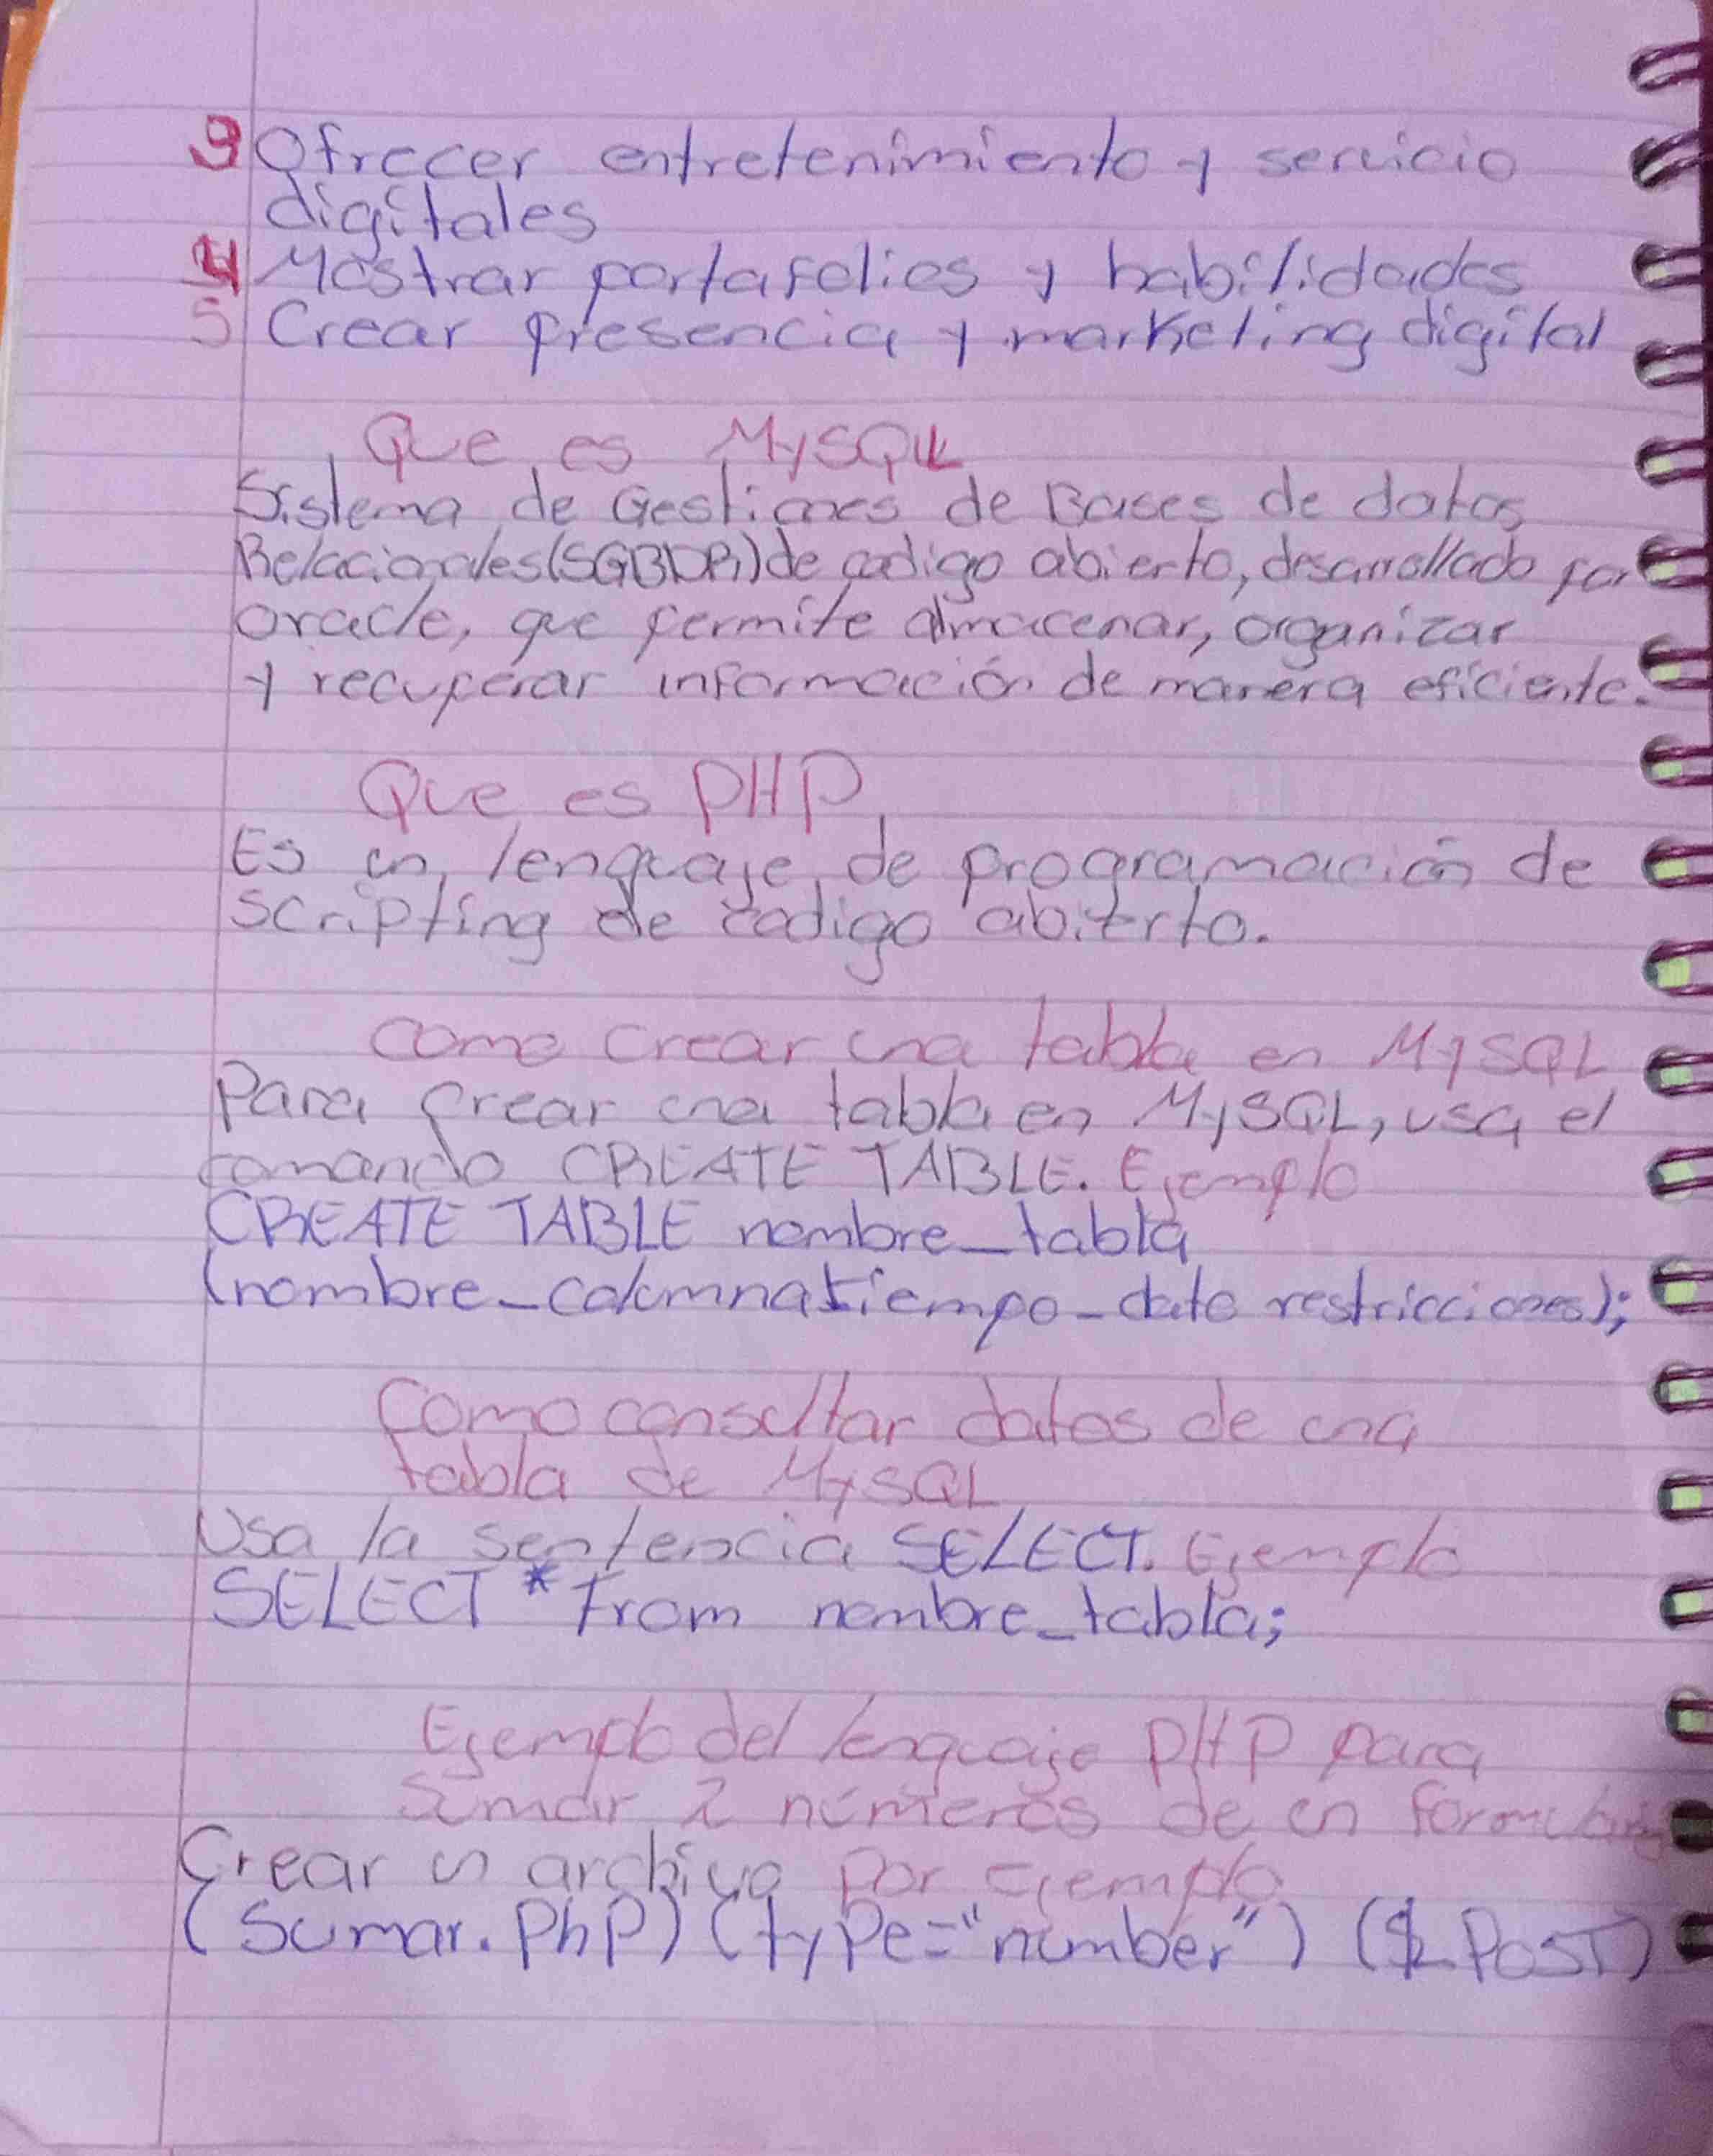 3 Ofrecer entretenimiento y servicio
digitales
4 Mostrar portafolios y habilidades
5 Crear presencia y marketing digital
Que es MySQL
Sistema de Gestiones de Bases de datos
Relacionales (SGBDR) de codigo abierto, desarrollado por
oracle, que permite almacenar, organizar
y recuperar información de manera eficiente.
Que es PHP
Es un lenguaje de programación de
scripting de codigo abierto.
Como crear una tabla en MySQL
Para crear una tabla en MySQL, usa el
comando CREATE TABLE. Ejemplo
CREATE TABLE nombre_tabla
(nombre_columna tiempo_dato restricciones);
Como consultar datos de una
tabla de MySQL
Usa la sentencia SELECT. Ejemplo
SELECT * From nombre_tabla;
Ejemplo del lenguaje PHP para
Sumar 2 números de un formulario
Crear un archivo por ejemplo
(Sumar.PhP) (tyPe="number") ($_POST)